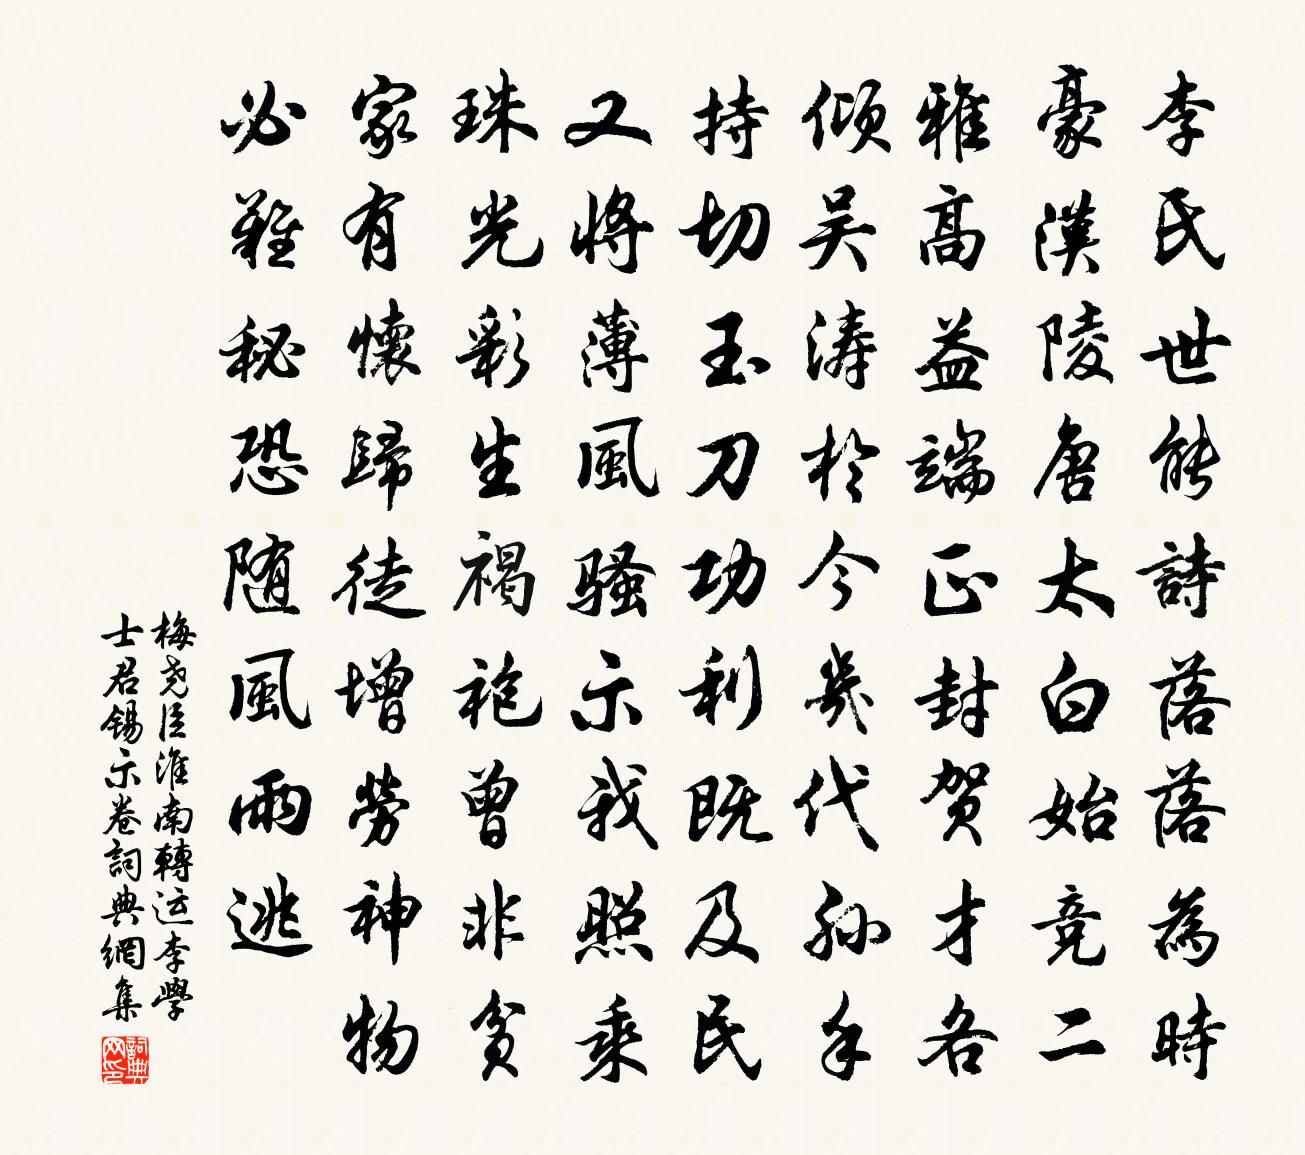 李氏世能詩落落為時
豪漢陵唐太白始竞二
雅高益端正封賀才各
傾吴涛於今幾代孙手
持切玉刀功利既及民
又將薄風騷示我照乘
珠光彩生褐袍曾非貧
家有懷歸徒增勞神物
必難秘恐随風雨逃
梅尧臣淮南轉运李學
士君錫示卷詞典網集
詞典
网印